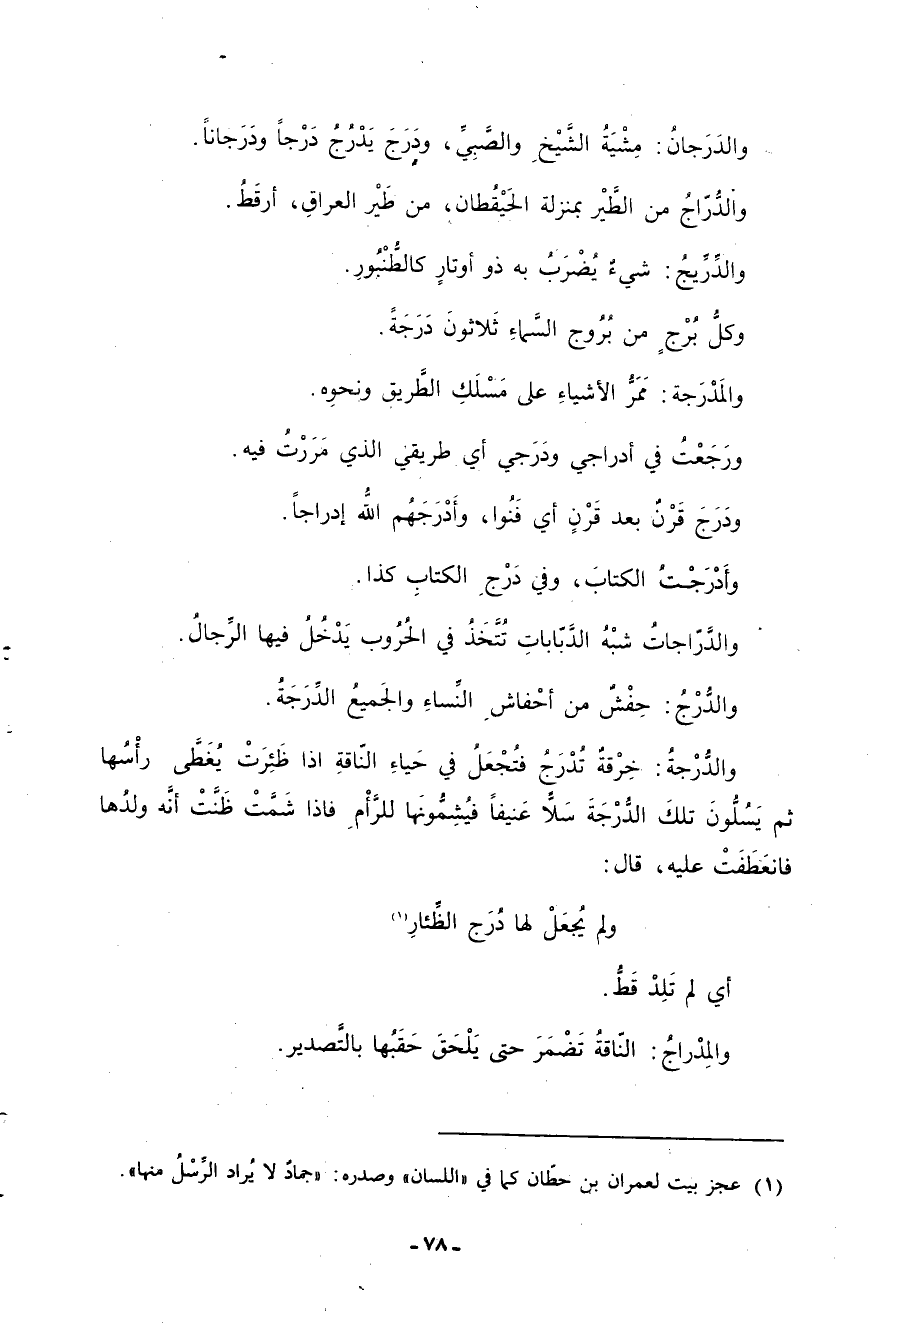 والدَرَجانُ: مِشْيَةُ الشَّيْخِ والصَّبِيِّ، ودَرَجَ يَدْرُجُ دَرْجاً ودَرَجاناً.
والدُّرّاجُ من الطَّيْر بمنزلة الحَيْقُطان، من طَيْر العراقِ، أرقَطُ.
والدِّرِّيجُ: شيءٌ يُضْرَبُ به ذو أوتارٍ كالطُّنْبُورِ.
وكلُّ بُرْجٍ من بُرُوج السَّماءِ ثَلاثونَ دَرَجَةً.
والمَدْرَجة: مَمَرُّ الأشياءِ على مَسْلَكِ الطَّريقِ ونحوِه.
ورَجَعْتُ في أدراجي ودَرَجي أي طريقي الذي مَرَرْتُ فيه.
ودَرَجَ قَرْنٌ بعد قَرْنٍ أي فَنُوا، وأَدْرَجَهُم اللَّه إدراجاً.
وأَدْرَجْتُ الكتابَ، وفي دَرْجِ الكتابِ كذا.
والدَّرّاجاتُ شبْهُ الدَّبّاباتِ تُتَّخَذُ في الحُرُوب يَدْخُلُ فيها الرِّجالُ.
والدُّرْجُ: حِفْشٌ من أحْفاشِ النِّساءِ والجَميعُ الدِّرَجَةُ.
والدُّرْجةُ: خِرْقةٌ تُدْرَجُ فتُجْعَلُ في حَياءِ النّاقةِ اذا ظَئِرَتْ يُغَطَّى رأْسُها
ثم يَسُلُّونَ تلكَ الدُّرْجَةَ سَلاًّ عَنيفاً فيُشِمُّونَها للرَّأْمِ فاذا شَمَّتْ ظَنَّتْ أنَّه ولدُها
فانعَطَفَتْ عليه، قال:
ولم يُجعَلْ لها دُرَج الظِّئارِ(١)
أي لم تَلِدْ قَطُّ.
والمِدْراجُ: النّاقةُ تَضْمَرَ حتى يَلْحَقَ حَقَبُها بالتَّصدير.
(١) عجز بيت لعمران بن حطّان كما في «اللسان» وصدره: «جمادٌ لا يُراد الرِّسْلُ منها».
- ٧٨ -